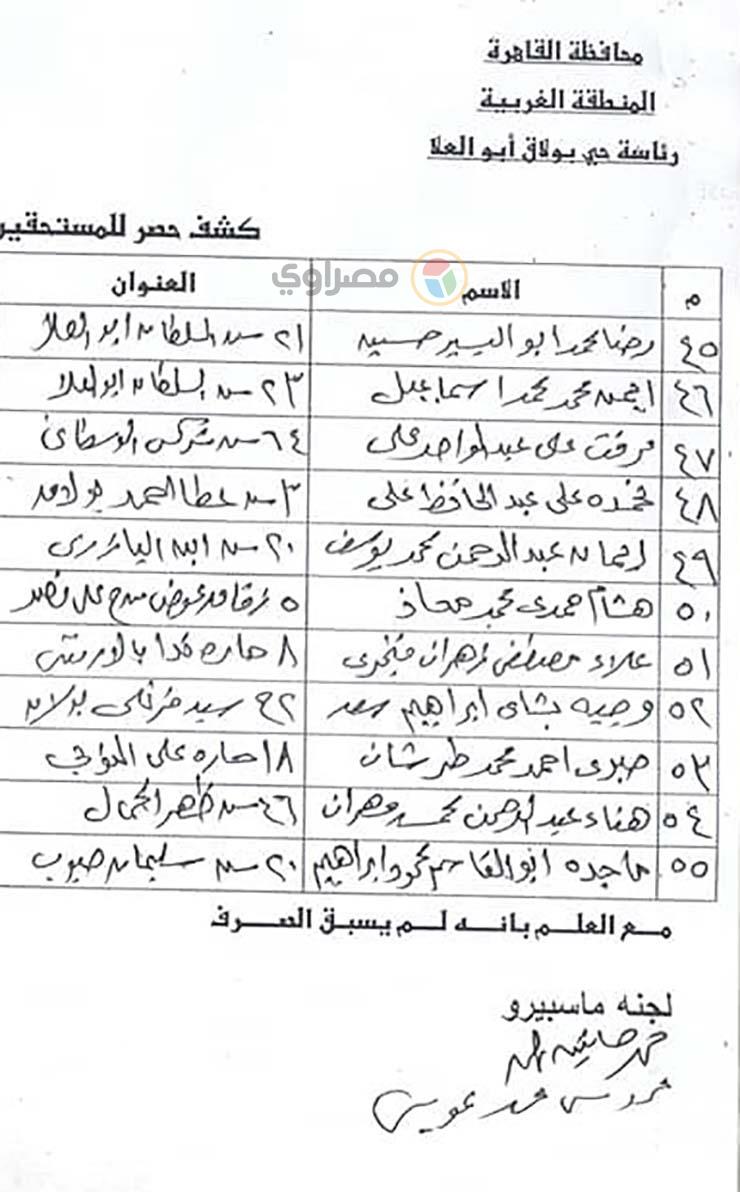 محافظة القاهرة
المنطقة الغربية
رئاسة حي بولاق أبو العلا
كشف حصر للمستحقين
مصراوي
م الاسم العنوان
٤٥ رضا محمد ابو اليسير حسين ٢١ ش السلطان ابو العلا
٤٦ ايمن محمد محمد اسماعيل ٢٣ ش السلطان ابو العلا
٤٧ مرفت على عبد الواحد على ٦٤ ش شركس الوسطانى
٤٨ حمده على عبد الحافظ على ٣ ش عطا بولاق
٤٩ ايمان عبد الرحمن محمد يوسف ٢٠ ش
٥٠ هشام حمدى محمد معاذ ٥ زقاق عوض
٥١ علاء مصطفى زهران ٨ حاره
٥٢ وجيه بشاى ابراهيم سعد ٢٢ سيد بولاق
٥٣ صبرى احمد محمد طرشان ١٨ حاره على
٥٤ هناء عبد الرحمن محمد مهران ٤٦ ش ظهر الجمال
٥٥ ماجده ابو القاسم محمود ابراهيم ٢٠ ش سليمان
مع العلم بانه لم يسبق الصرف
لجنه ماسبيرو